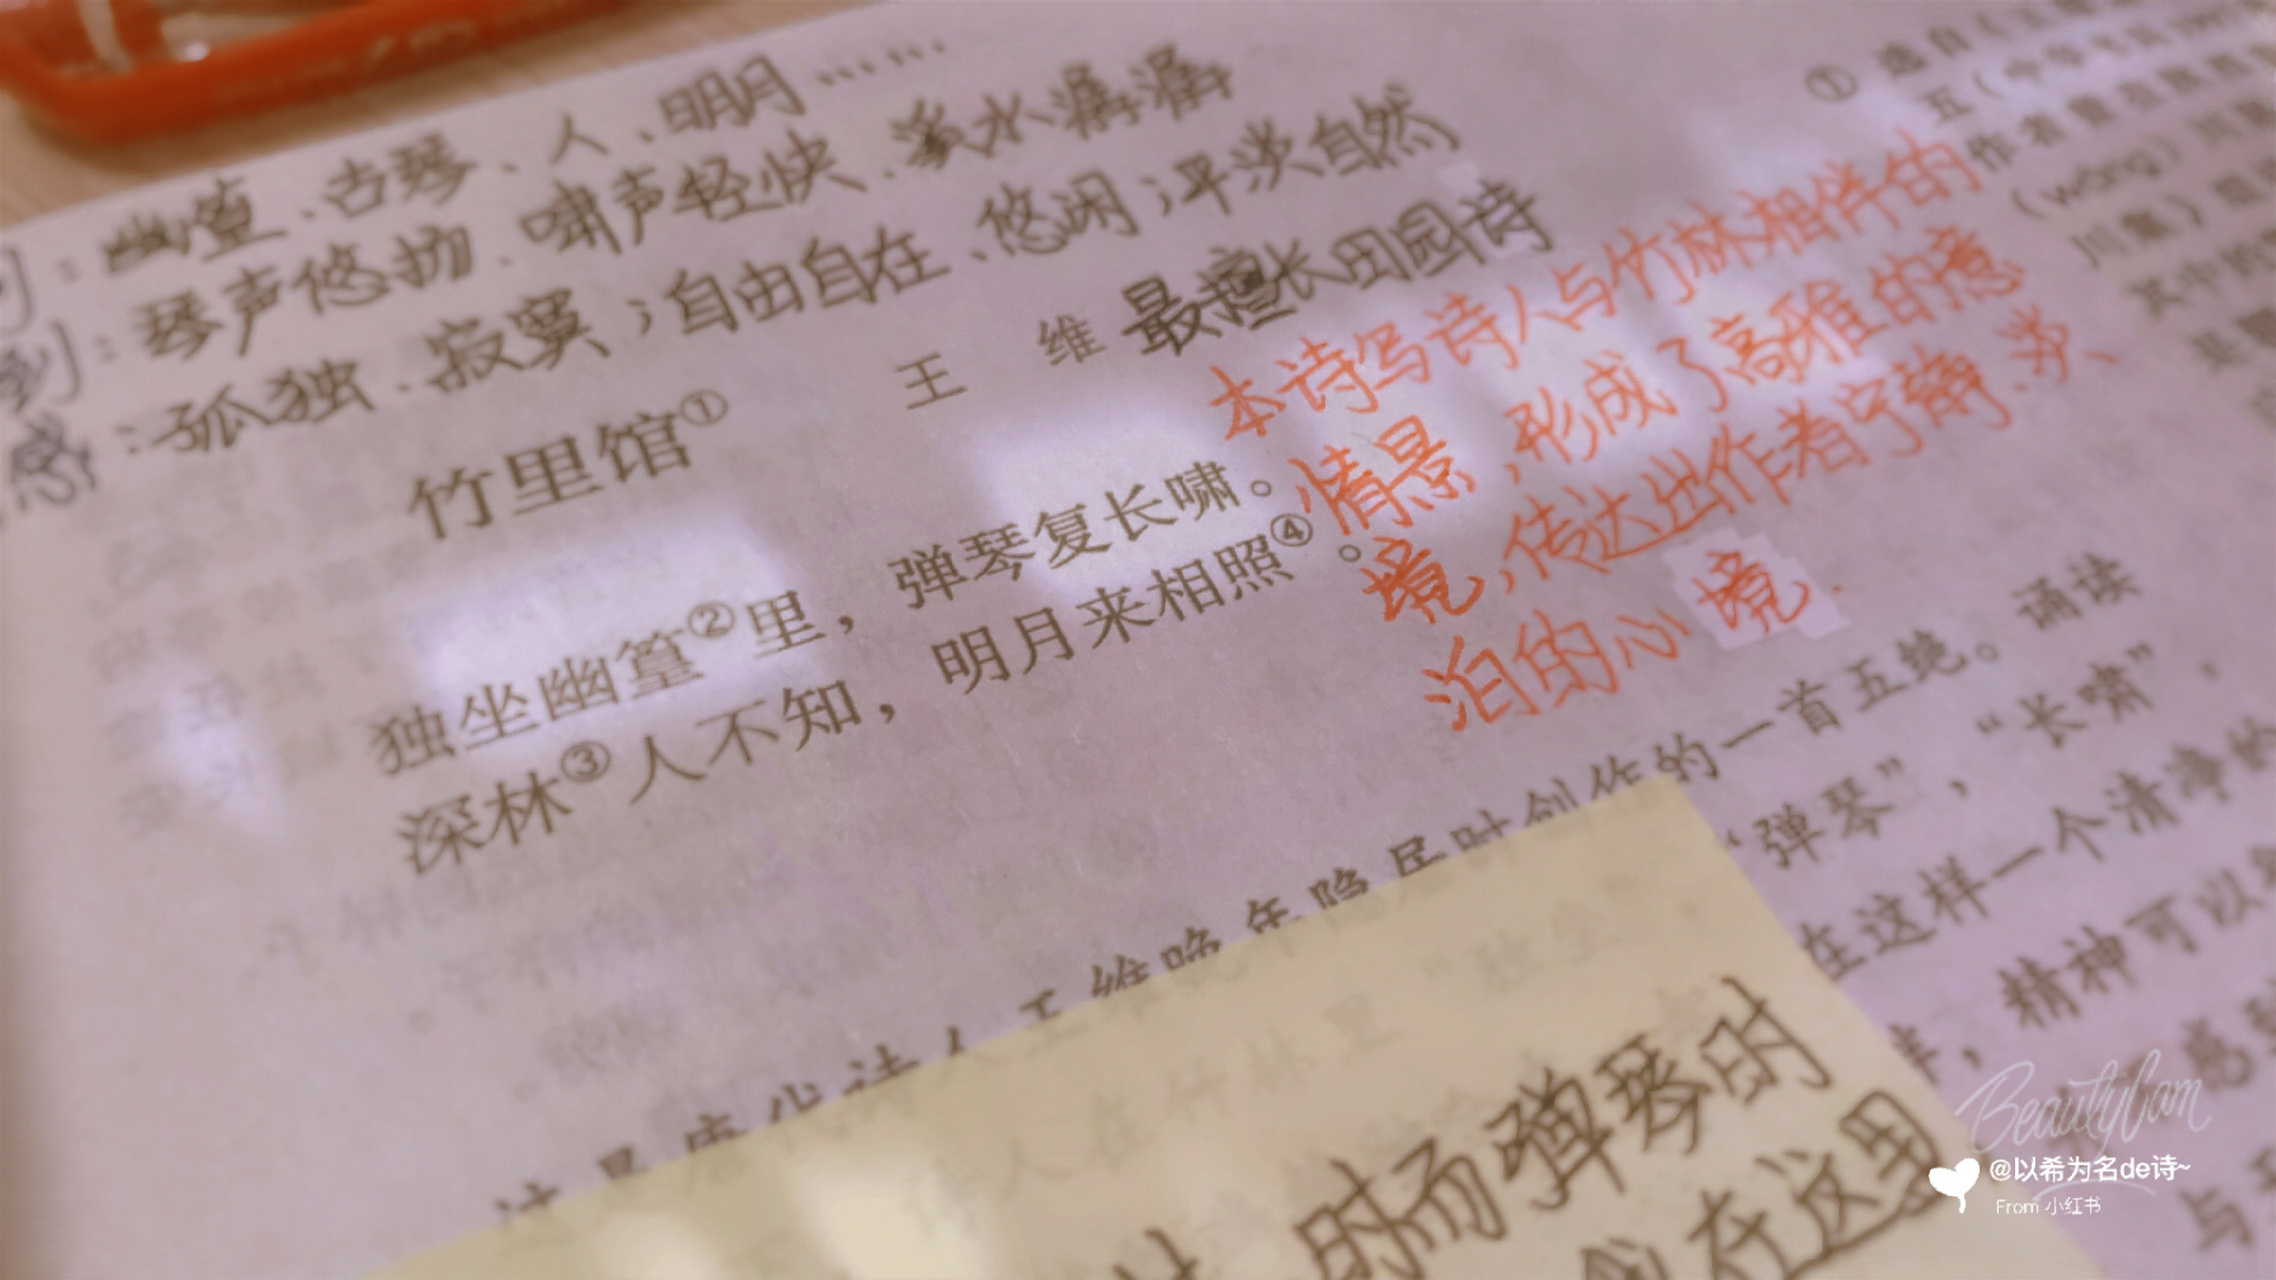 ：幽篁、古琴、人、明月……
到：琴声悠扬、啸声轻快、溪水潺潺
感：孤独、寂寞；自由自在、悠闲；平淡自然
竹里馆①
王 维 最擅长田园诗
独坐幽篁②里，弹琴复长啸。
深林③人不知，明月来相照④。
本诗写诗人与竹林相伴的
情景，形成了高雅的意
境，传达出作者宁静、淡
泊的心境.
① 选自《王
五（中华书局
作者曾在
（wǎng）川
川集》
其中的
是
这是唐代诗人王维晚年隐居时创作的一首五绝。诵读
“弹琴”，“长啸”，
在这样一个清净的
，精神可以
感
与
弹琴的时
在这里
Beautycam
@以希为名de诗~
From 小红书